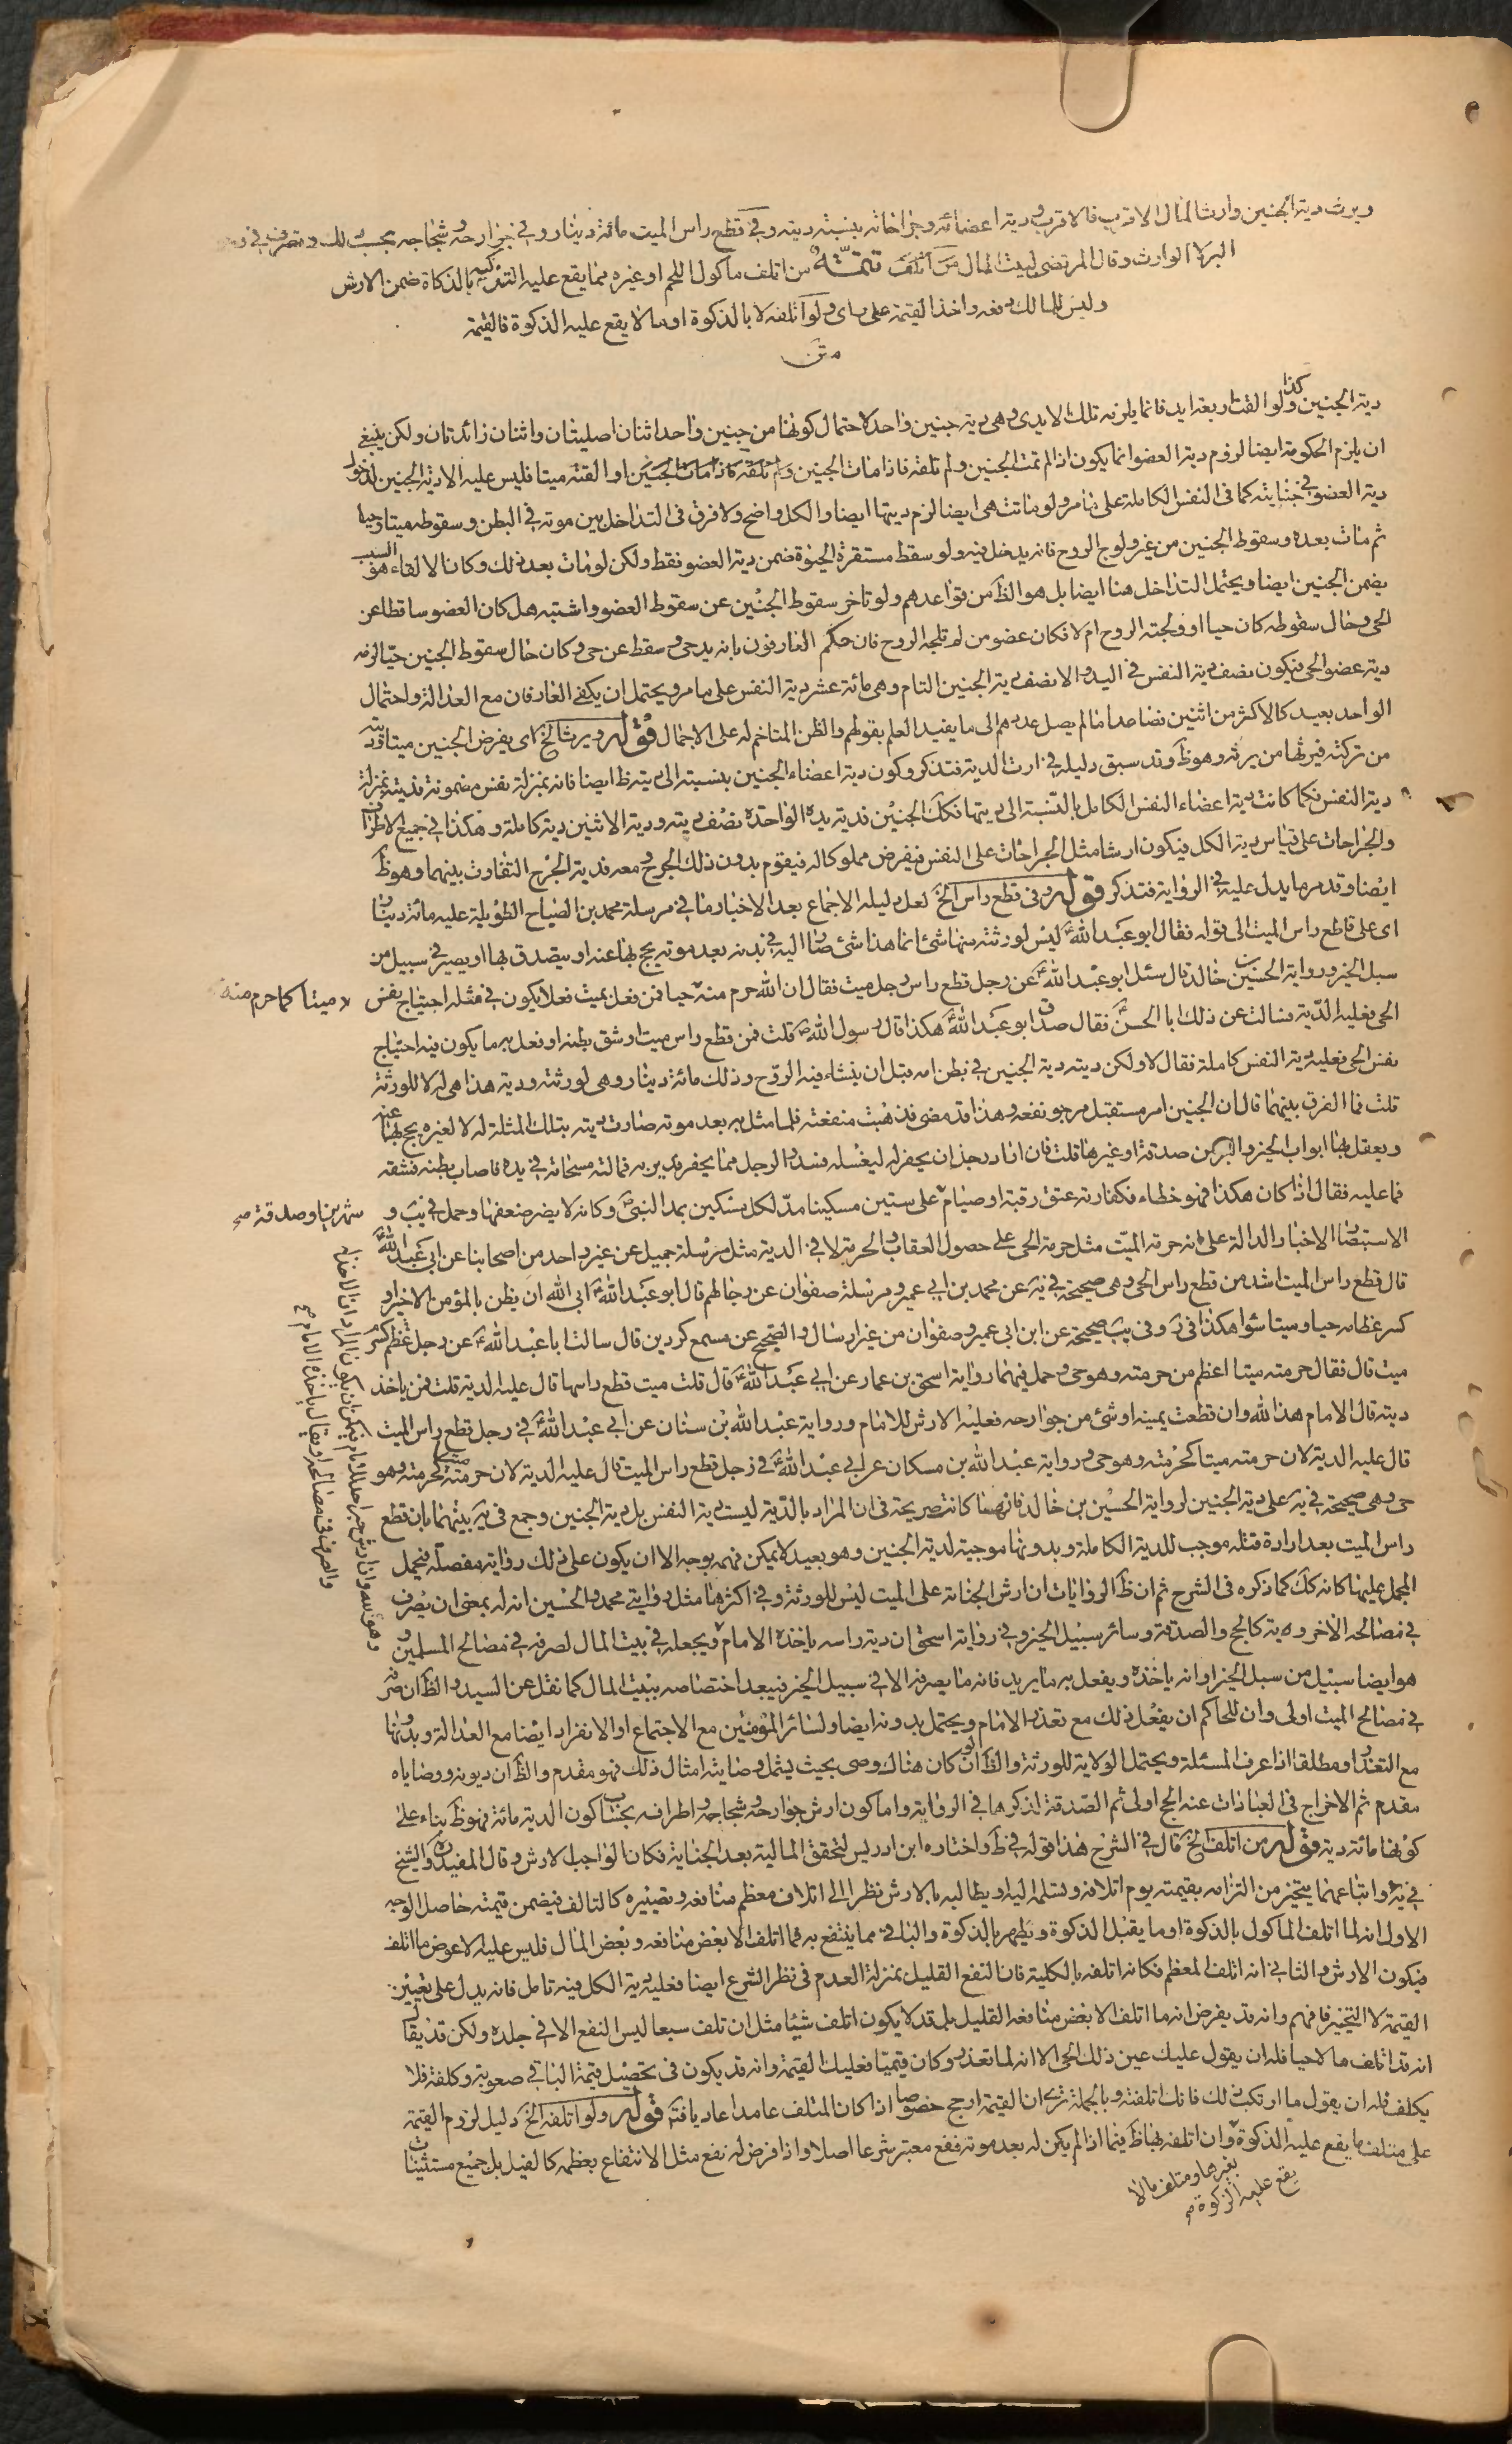 ويرث دية الجنين وارث المال الاقرب فالاقرب ودية اعضائه وجراحاته بنسبة ديته وفي قطع راس الميت مائة دينار وفي جوارحه وشجاجه بحسب ذلك وتصرف في وجوه
البر لا الوارث وقال المرتضى لبيت المال تتمة من اتلف ماكول اللحم او غيره مما يقع عليه التذكية بالذكاة ضمن الارش
وليس للمالك دفعه واخذ القيمة على راى ولو اتلفه لا بالذكوة او ما لا يقع عليه الذكوة فالقيمة
متن
دية الجنين وكذا لو القت اربعة ايد فانما يلزمه تلك الايدى وهى دية جنين واحد لاحتمال كونها من جنين واحد اثنان اصليتان واثنان زائدتان ولكن ينبغى
ان يلزم الحكومة ايضا لزوم دية العضو انما يكون اذا لم تمت الجنين ولم تلقه فاذا مات الجنين او القته ميتا فليس عليه الا دية الجنين لدخول
دية العضو في جنايته كما فى النفس الكاملة على ما مر ولو ماتت هى ايضا لزم ديتها ايضا والكل واضح ولا فرق فى التداخل بين موته في البطن وسقوطه ميتا وحيا
ثم مات بعده وسقوط الجنين من غير ولوج الروح فانه يدخل فيه ولو سقط مستقرة الحيوة ضمن دية العضو فقط ولكن لو مات بعد ذلك وكان الالقاء هو السبب
يضمن الجنين ايضا ويحتمل التداخل هنا ايضا بل هو الظ من قواعدهم ولو تاخر سقوط الجنين عن سقوط العضو واشتبه هل كان العضو ساقطا عن
الحى وحال سقوطه كان حيا او ولجته الروح ام لا فكان عضو من لم تلجه الروح فان حكم العارفون بانه يد حى وسقط عن حى وكان حال سقوط الجنين حيا لزمه
دية عضو الحى فيكون نصف دية النفس فى اليد والا نصف دية الجنين التام وهى مائة عشر دية النفس على ما مر ويحتمل ان يكفى العارفان مع العدالة واحتمال
الواحد بعيد كالاكثر من اثنين فصاعدا ما لم يصل عددهم الى ما يفيد العلم بقولهم والظن المتاخم له على الاجمال قوله ويرث الخ اى يفرض الجنين ميتا وديته
من تركته فيرثها من يرثه وهو ظ وقد سبق دليله في ارث الدية فتذكر وكون دية اعضاء الجنين بنسبته الى ديته ظ ايضا فانه بمنزلة نفس مضمونة فديته بمنزلة
دية النفس فكما كانت دية اعضاء النفس الكامل بالنسبة الى ديتها فكك الجنين فدية يده الواحدة نصف ديته ودية الاثنين دية كاملة وهكذا في جميع الاطراف
والجراحات على قياس دية الكل فيكون ارشا مثل الجراحات على النفس فيفرض مملوكا له فيقوم بدون ذلك الجرح ومعه فدية الجرح التفاوت بينهما وهو ظ
ايضا وقد مر ما يدل عليه في الرواية فتذكر قوله وفى قطع راس الخ لعل دليله الاجماع بعد الاخبار وما في مرسلة محمد بن الصباح الطويلة عليه مائة دينار
اى على قاطع راس الميت الى قوله فقال ابو عبد الله ع ليس لورثته منها شئ انما هذا شئ صار اليه في بدنه بعد موته يحج بها عنه او يتصدق بها او يصير في سبيل من
سبل الخير ورواية الحسين بن خالد قال سئل ابو عبد الله ع عن رجل قطع راس رجل ميت فقال ان الله حرم منه ميتا كما حرم منه حيا فمن فعل بميت فعلا يكون في مثله اجتياح نفس
الحى فعليه الدية فسالت عن ذلك ابا الحسن ع فقال صدق ابو عبد الله ع هكذا قال رسول الله ص قلت فمن قطع راس ميت او شق بطنه او فعل به ما يكون فيه اجتياح
نفس الحى فعليه دية النفس كاملة فقال لا ولكن ديته دية الجنين في بطن امه قبل ان ينشاء فيه الروح وذلك مائة دينار وهى لورثته ودية هذا هى له لا للورثة
قلت فما الفرق بينهما قال ان الجنين امر مستقبل مرجو نفعه وهذا قد مضى فذهبت منفعته فلما مثل به بعد موته صارت ديته بتلك المثلة له لا لغيره يحج بها عنه
ويفعل بها ابواب الخير والبر من صدقة او غيرها قلت فان اراد رجل ان يحفر له ليغسله فسدر الرجل مما يحفر بين يديه فمالت مسحاته في يده فاصاب بطنه فشقه
فما عليه فقال اذا كان هكذا فهو خطاء فكفارته عتق رقبة او صيام شهرين او صدقة على ستين مسكينا مد لكل مسكين بمد النبى ص وكانه لا يضر ضعفها وحمل في يب و
الاستبصار الاخبار الدالة على انه حرمة الميت مثل حرمة الحى على حصول العقاب والحرمة لا في الدية مثل مرسلة جميل عن غير واحد من اصحابنا عن ابى عبد الله ع
قال قطع راس الميت اشد من قطع راس الحى وهى صحيحة في يه عن محمد بن ابى عمير ومرسلة صفوان عن رجالهم قال ابو عبد الله ع ابى الله ان يظن بالمؤمن الا خيرا و
كسر عظامه حيا وميتا سواء هكذا فى ر وفى يب صحيحة عن ابن ابى عمير وصفوان من غير ارسال والصحيح عن مسمع كردين قال سالت ابا عبد الله ع عن رجل كسر عظم
ميت قال فقال حرمته ميتا اعظم من حرمته وهو حى وحمل فيهما رواية اسحق بن عمار عن ابى عبد الله ع قال قلت ميت قطع راسه قال عليه الدية قلت فمن ياخذ
ديته قال الامام هذا لله وان قطعت يمينه او شئ من جوارحه فعليه الارش للامام ورواية عبد الله بن سنان عن ابى عبد الله ع في رجل قطع راس الميت
قال عليه الدية لان حرمته ميتا كحرمته وهو حى ورواية عبد الله بن مسكان عن ابى عبد الله ع في رجل قطع راس الميت قال عليه الدية لان حرمته ميتا كحرمته وهو
حى وهى صحيحة في يه على دية الجنين لرواية الحسين بن خالد فانهما كانت صريحة فى ان المراد بالدية ليست دية النفس بل دية الجنين وجمع فى يه بينهما بان قطع
راس الميت بعد ارادة قتله موجب للدية الكاملة وبدونها موجبة لدية الجنين وهو بعيد لا يمكن فهمه بوجه الا ان يكون على ذلك رواية مفصلة فيحمل
المجمل عليها كانه كك كما ذكره فى الشرح ثم ان ظ الروايات ان ارش الجناية على الميت ليس للورثة وفي اكثرها مثل روايتى محمد والحسين انه له بمعنى ان يصرف
في مصالحه الاخروية كالحج والصدقة وسائر سبيل الخير وفي رواية اسحق ان دية راسه ياخذه الامام ويجعله في بيت المال لصرفه في مصالح المسلمين و
هو ايضا سبيل من سبل الخير او انه ياخذه ويفعل به ما يريد فانه ما يصرفه الا في سبيل الخير فيبعد اختصاصه ببيت المال كما نقل عن السيد والظ ان صرفه
في مصالح الميت اولى وان للحاكم ان يفعل ذلك مع تعذر الامام ويحتمل بدونه ايضا ولسائر المؤمنين مع الاجتماع او الانفراد ايضا مع العدالة وبدونها
مع التعذر او مطلقا اذا عرف المسئلة ويحتمل الولاية للورثة والظ ان لو كان هناك وصى بحيث يشمل وصايته امثال ذلك فهو مقدم والظ ان ديونه ووصاياه
مقدم ثم الاخراج فى العبادات عنه الحج اولى ثم الصدقة لذكرها فى الرواية واما كون ارش جوارحه وشجاجه واطرافه بحساب كون الدية مائة فهو ظ بناء على
كونها مائة دية قوله من اتلف الخ قال في الشرح هذا قوله في ط واختاره ابن ادريس لتحقق المالية بعد الجناية فكان الواجب الارش وقال المفيد ره والشيخ
في يه واتباعهما يتخير من التزامه بقيمته يوم اتلافه وتسلمه اليه او يطالبه بالارش نظرا الى اتلاف معظم منافعه وتصييره كالتالف فيضمن قيمته حاصل الوجه
الاول انه لما اتلف الماكول بالذكوة او ما يقبل الذكوة ويطهر بالذكوة والباقى مما ينتفع به فما اتلف الا بعض منافعه وبعض المال فليس عليه الا عوض ما اتلف
فيكون الارش والثانى انه اتلف المعظم فكانه اتلفه بالكلية فان النفع القليل بمنزلة العدم فى نظر الشرع ايضا فعليه دية الكل فيه تامل فانه يدل على تعيين
القيمة لا التخيير فافهم وانه قد يفرض انه ما اتلف الا بعض منافعه القليل بل قد لا يكون اتلف شيئا مثل ان تلف سبعا ليس النفع الا في جلده ولكن قد يقال
انه قد اتلف مالا حيا فله ان يقول عليك عين ذلك الحى الا انه لما تعذر وكان قيميا فعليك القيمة وانه قد يكون فى تحصيل قيمة الباقى صعوبة وكلفة فلا
يكلف فله ان يقول ما ارتكب ذلك فانك اتلفته وبالجملة ترى ان القيمة ارجح خصوصا اذا كان المتلف عامدا عاديا فتم قوله ولو اتلفه الخ دليل لزوم القيمة
على متلف ما يقع عليه الذكوة وان اتلفه بها ظ فيما اذا لم يكن له بعد موته نفع معتبر شرعا اصلا واذا فرض له نفع مثل الانتفاع بعظمه كالفيل بل جميع مستثنيات
بغيرها ومتلف ما لا
يقع عليه الزكوة م